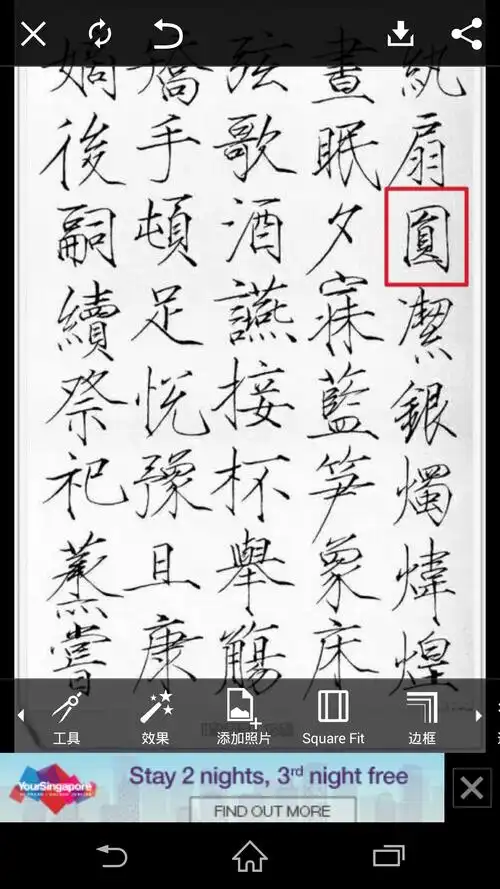 紈扇圓潔銀燭煒煌
晝眠夕寐藍笋象床
弦歌酒讌接杯舉觴
矯手頓足悦豫且康
嫡後嗣續祭祀蒸嘗
工具 效果 添加照片 Square Fit 边框
YourSingapore
Stay 2 nights, 3rd night free
FIND OUT MORE